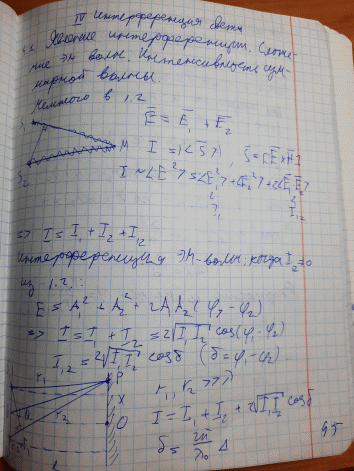 IV Интерференция света
4.1 Явление интерференции. Сложе-
ние ЭМ волн. Интенсивность сум-
марной волны.
Немного в 1.2
E̅ = E̅₁ + E̅₂
S₁
M
S₂
I = |<S̅>|, S̅ = [E̅×H̅]
I ~ <E̅²> = <E̅₁²> + <E̅₂²> + 2<E̅₁E̅₂>
I₁ I₁₂
=> I = I₁ + I₂ + I₁₂
ЭМ-волны: когда I₁₂ = 0
из 1.2.:
E = A₁² + A₂² + 2A₁A₂ (φ₁ - φ₂)
=> I = I₁ + I₂ = 2√I₁I₂ cos(φ₁-φ₂)
I₁,₂ = 2√I₁I₂ cosδ (δ = φ₁ - φ₂)
r₁ P
r₂ X
O
l
r₁, r₂ >>> l
I = I₁ + I₂ + 2√I₁I₂ cosδ
δ = 2π/λ₀ Δ
45